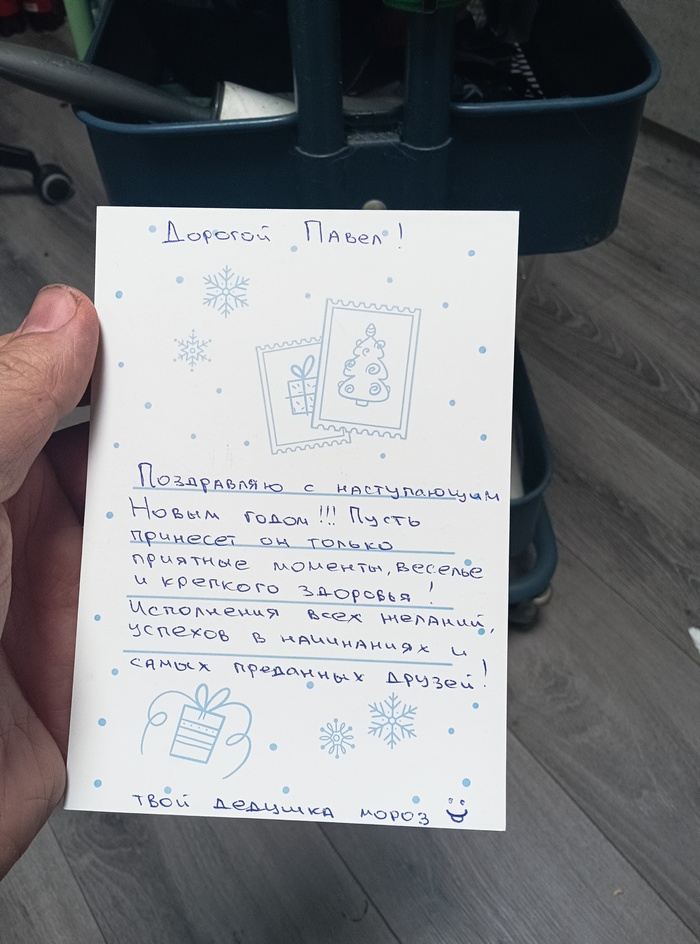 Дорогой Павел!
Поздравляю с наступающим
Новым годом!!! Пусть
принесет он только
приятные моменты, веселье
и крепкого здоровья!
Исполнения всех желаний,
успехов в начинаниях и
самых преданных друзей!
твой дедушка мороз